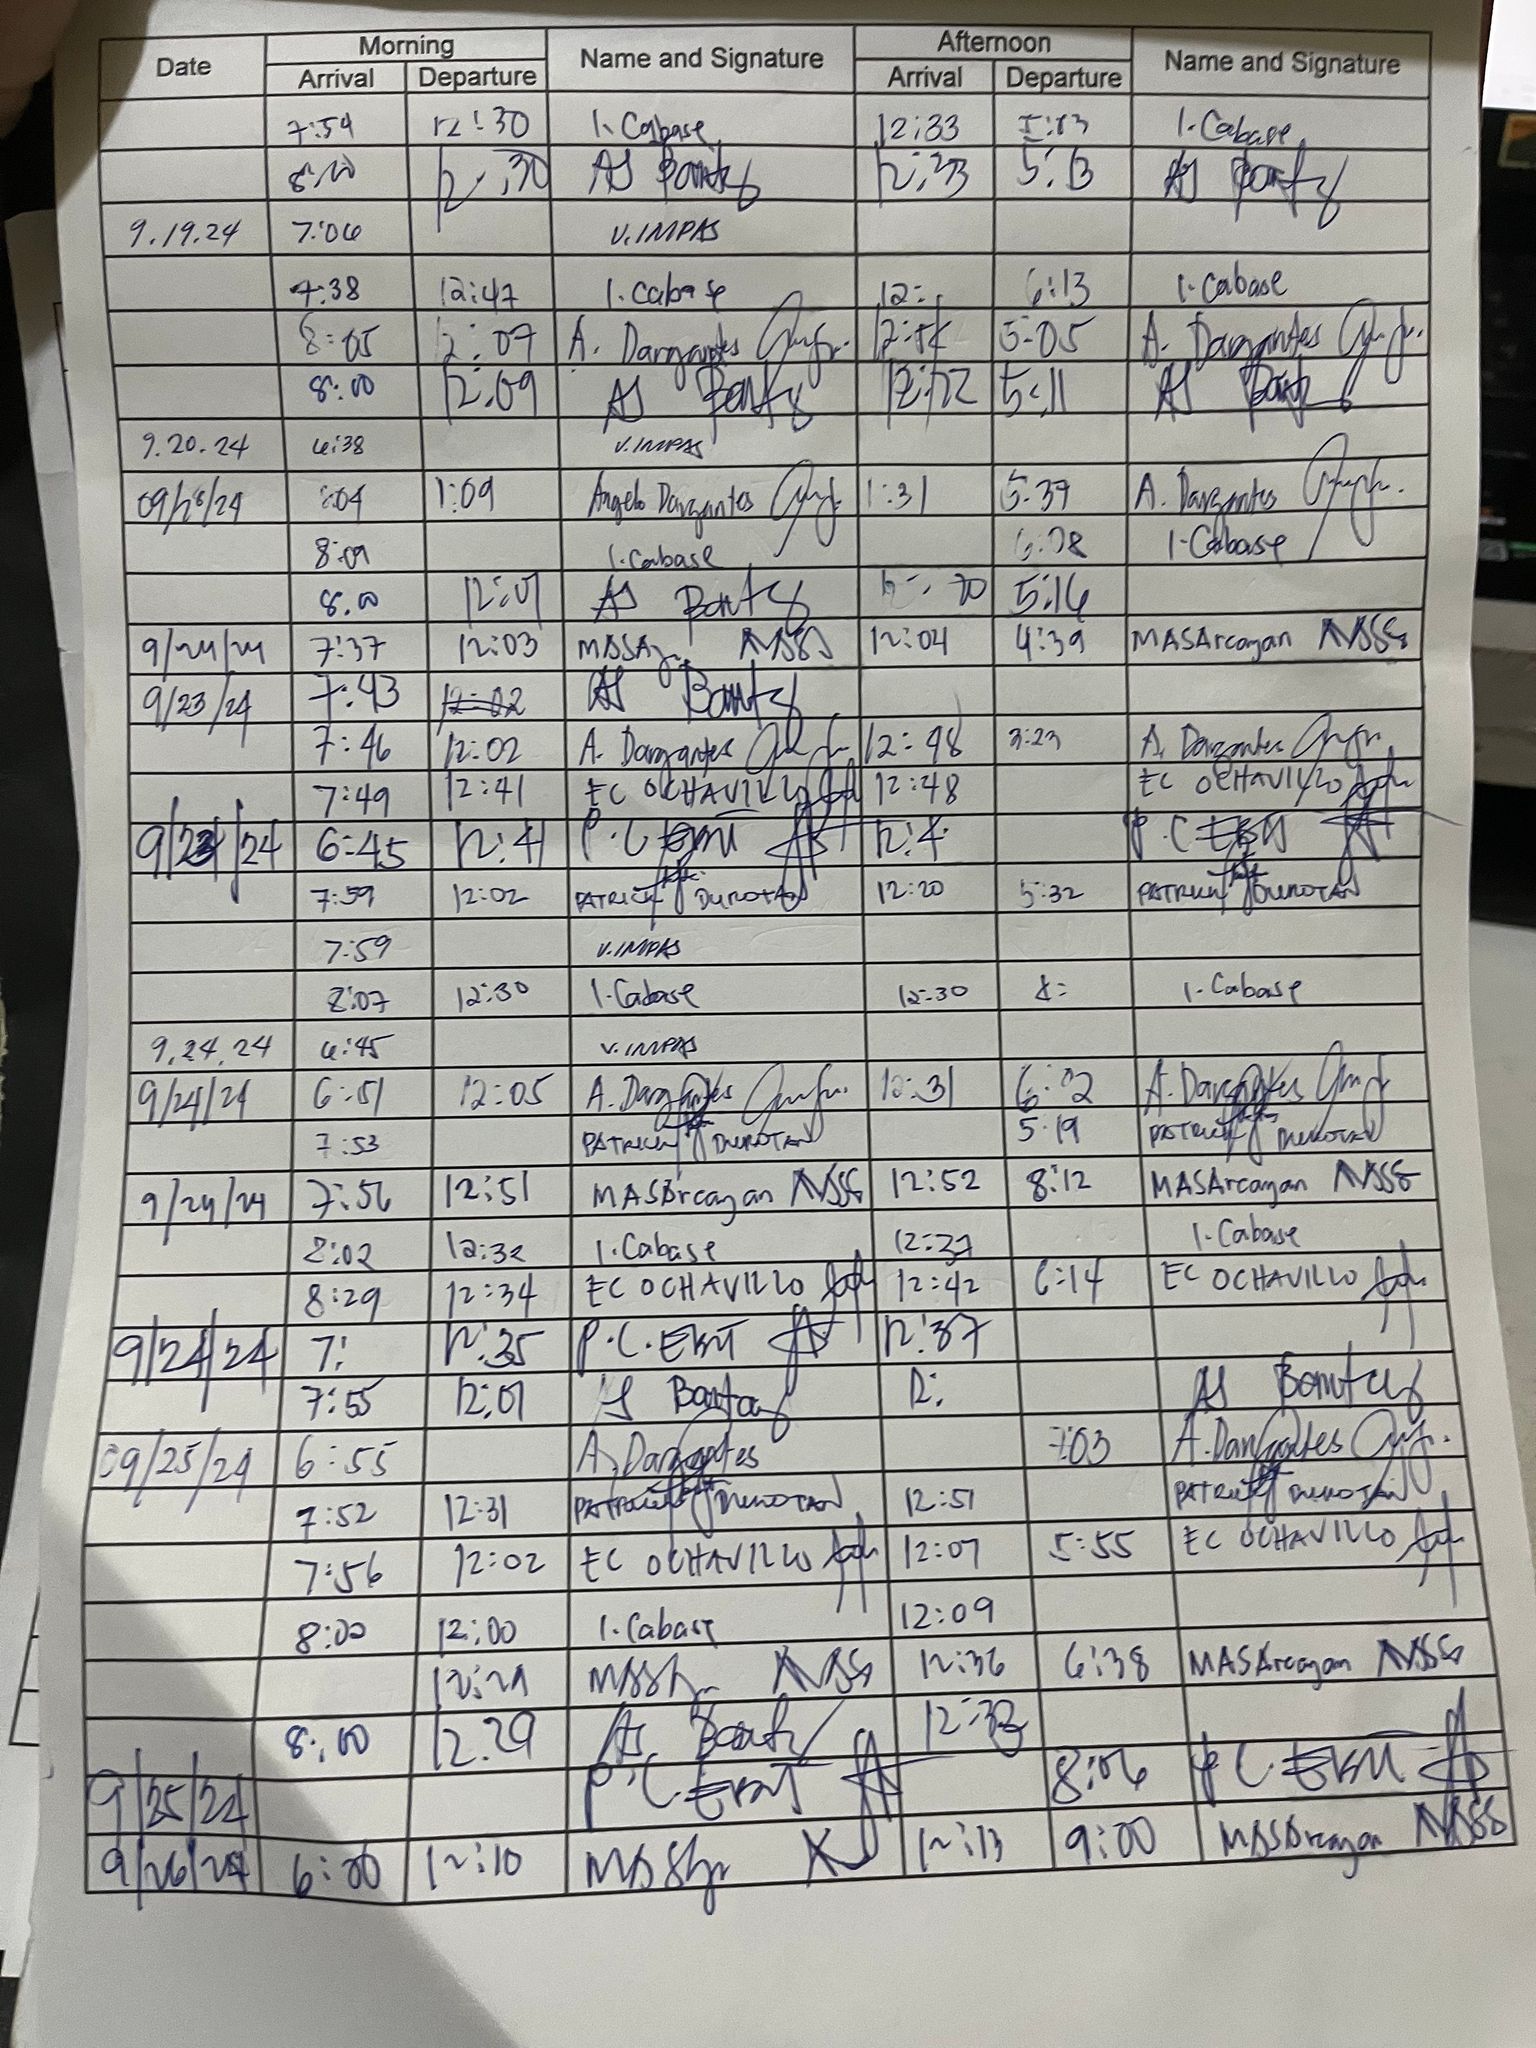 Date Morning Name and Signature Afternoon Name and Signature
Arrival Departure Arrival Departure
7:54 12:30 I. Cabase 12:33 5:13 I. Cabase
8:00 12:30 AJ 12:33 5:13 AJ
9.19.24 7:06 V. IMPAS
7:38 12:47 I. Cabase 12: 6:13 I. Cabase
8:05 12:07 A. Dargantes 5:05 A. Dargantes
8:00 12:09 AJ 12:12 5:11 AJ
9.20.24 6:38 V. IMPAS
:04 1:09 Angelo Dargantes 1:31 5:37 A. Dargantes
8:09 I. Cabase 6:08 I. Cabase
8:00 12:01 AJ 5:16
9/24/24 7:37 12:03 12:04 4:39 MASArcayan
9/23/24 7:43 12:02 AJ
7:46 12:02 A. Dargantes 12:48 3:23 A. Dargantes
7:49 12:41 EC OCHAVILLO 12:48 EC OCHAVILLO
9/23/24 6:45 12:41 P.C. 12:4 P.C.
7:59 12:02 PATRICK DUROTAN 12:20 5:32 PATRICK DUROTAN
7:59 V. IMPAS
8:07 12:30 I. Cabase 12:30 I. Cabase
9.24.24 6:45 V. IMPAS
9/24/24 6:51 12:05 A. Dargantes 12:31 6:02 A. Dargantes
7:53 PATRICK DUROTAN 5:19 PATRICK DUROTAN
9/24/24 7:56 12:51 MASArcayan 12:52 8:12 MASArcayan
8:02 12:32 I. Cabase 12:37 I. Cabase
8:29 12:34 EC OCHAVILLO 12:42 6:14 EC OCHAVILLO
9/24/24 7: 12:35 P.C. 12:37
7:55 12:01 AJ 12: AJ
09/25/24 6:55 A. Dargantes 7:03 A. Dargantes
7:52 12:31 PATRICK DUROTAN 12:51 PATRICK DUROTAN
7:56 12:02 EC OCHAVILLO 12:07 5:55 EC OCHAVILLO
8:00 12:00 I. Cabase 12:09
12:29 12:36 6:38 MASArcayan
8:00 12:29 AJ 12:32
9/25/24 P.C. 8:06 P.C.
9/26/24 6:00 12:10 12:13 9:00 MASArcayan